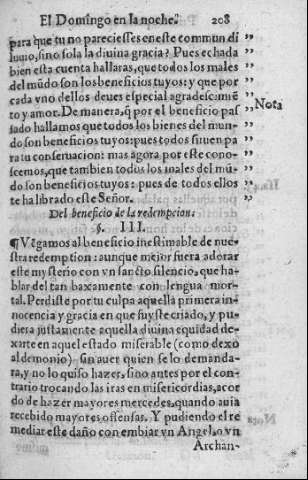 El Domingo en la noche. 208
para que tu no pareciesses en este commun di
luuio, sino sola la diuina gracia? Pues echada
bien esta cuenta hallaras, que todos los males
del mũdo son los beneficios tuyos: y que por
cada vno dellos deues especial agradescimiē
to y amor. De manera, q̃ por el beneficio pas
Nota
sado hallamos que todos los bienes del mun-
do son beneficios tuyos: pues todos siruen pa
ra tu conseruacion: mas agora por este cono-
scemos, que tambien todos los males del mũ-
do son beneficios tuyos: pues de todos ellos
te ha librado este Señor.
Del beneficio de la redempcion.
§. III.
¶ Vẽgamos al beneficio inestimable de nue-
stra redemption: aunque mejor fuera adorar
este mysterio con vn sancto silencio, que ha-
blar del tan baxamente con lengua mor-
tal. Perdiste por tu culpa aquella primera in-
nocencia y gracia en que fuyste criado, y pu-
diera justamente aquella diuina equidad de-
xarte en aquel estado miserable (como dexo
al demonio) sin auer quien se lo demanda-
ra, y no lo quiso hazer, sino antes por el con-
trario trocando las iras en misericordias, acor
do de hazer mayores mercedes, quando auia
recebido mayores offensas. Y pudiendo el re
mediar este daño con embiar vn Angel, o vn
Archan-